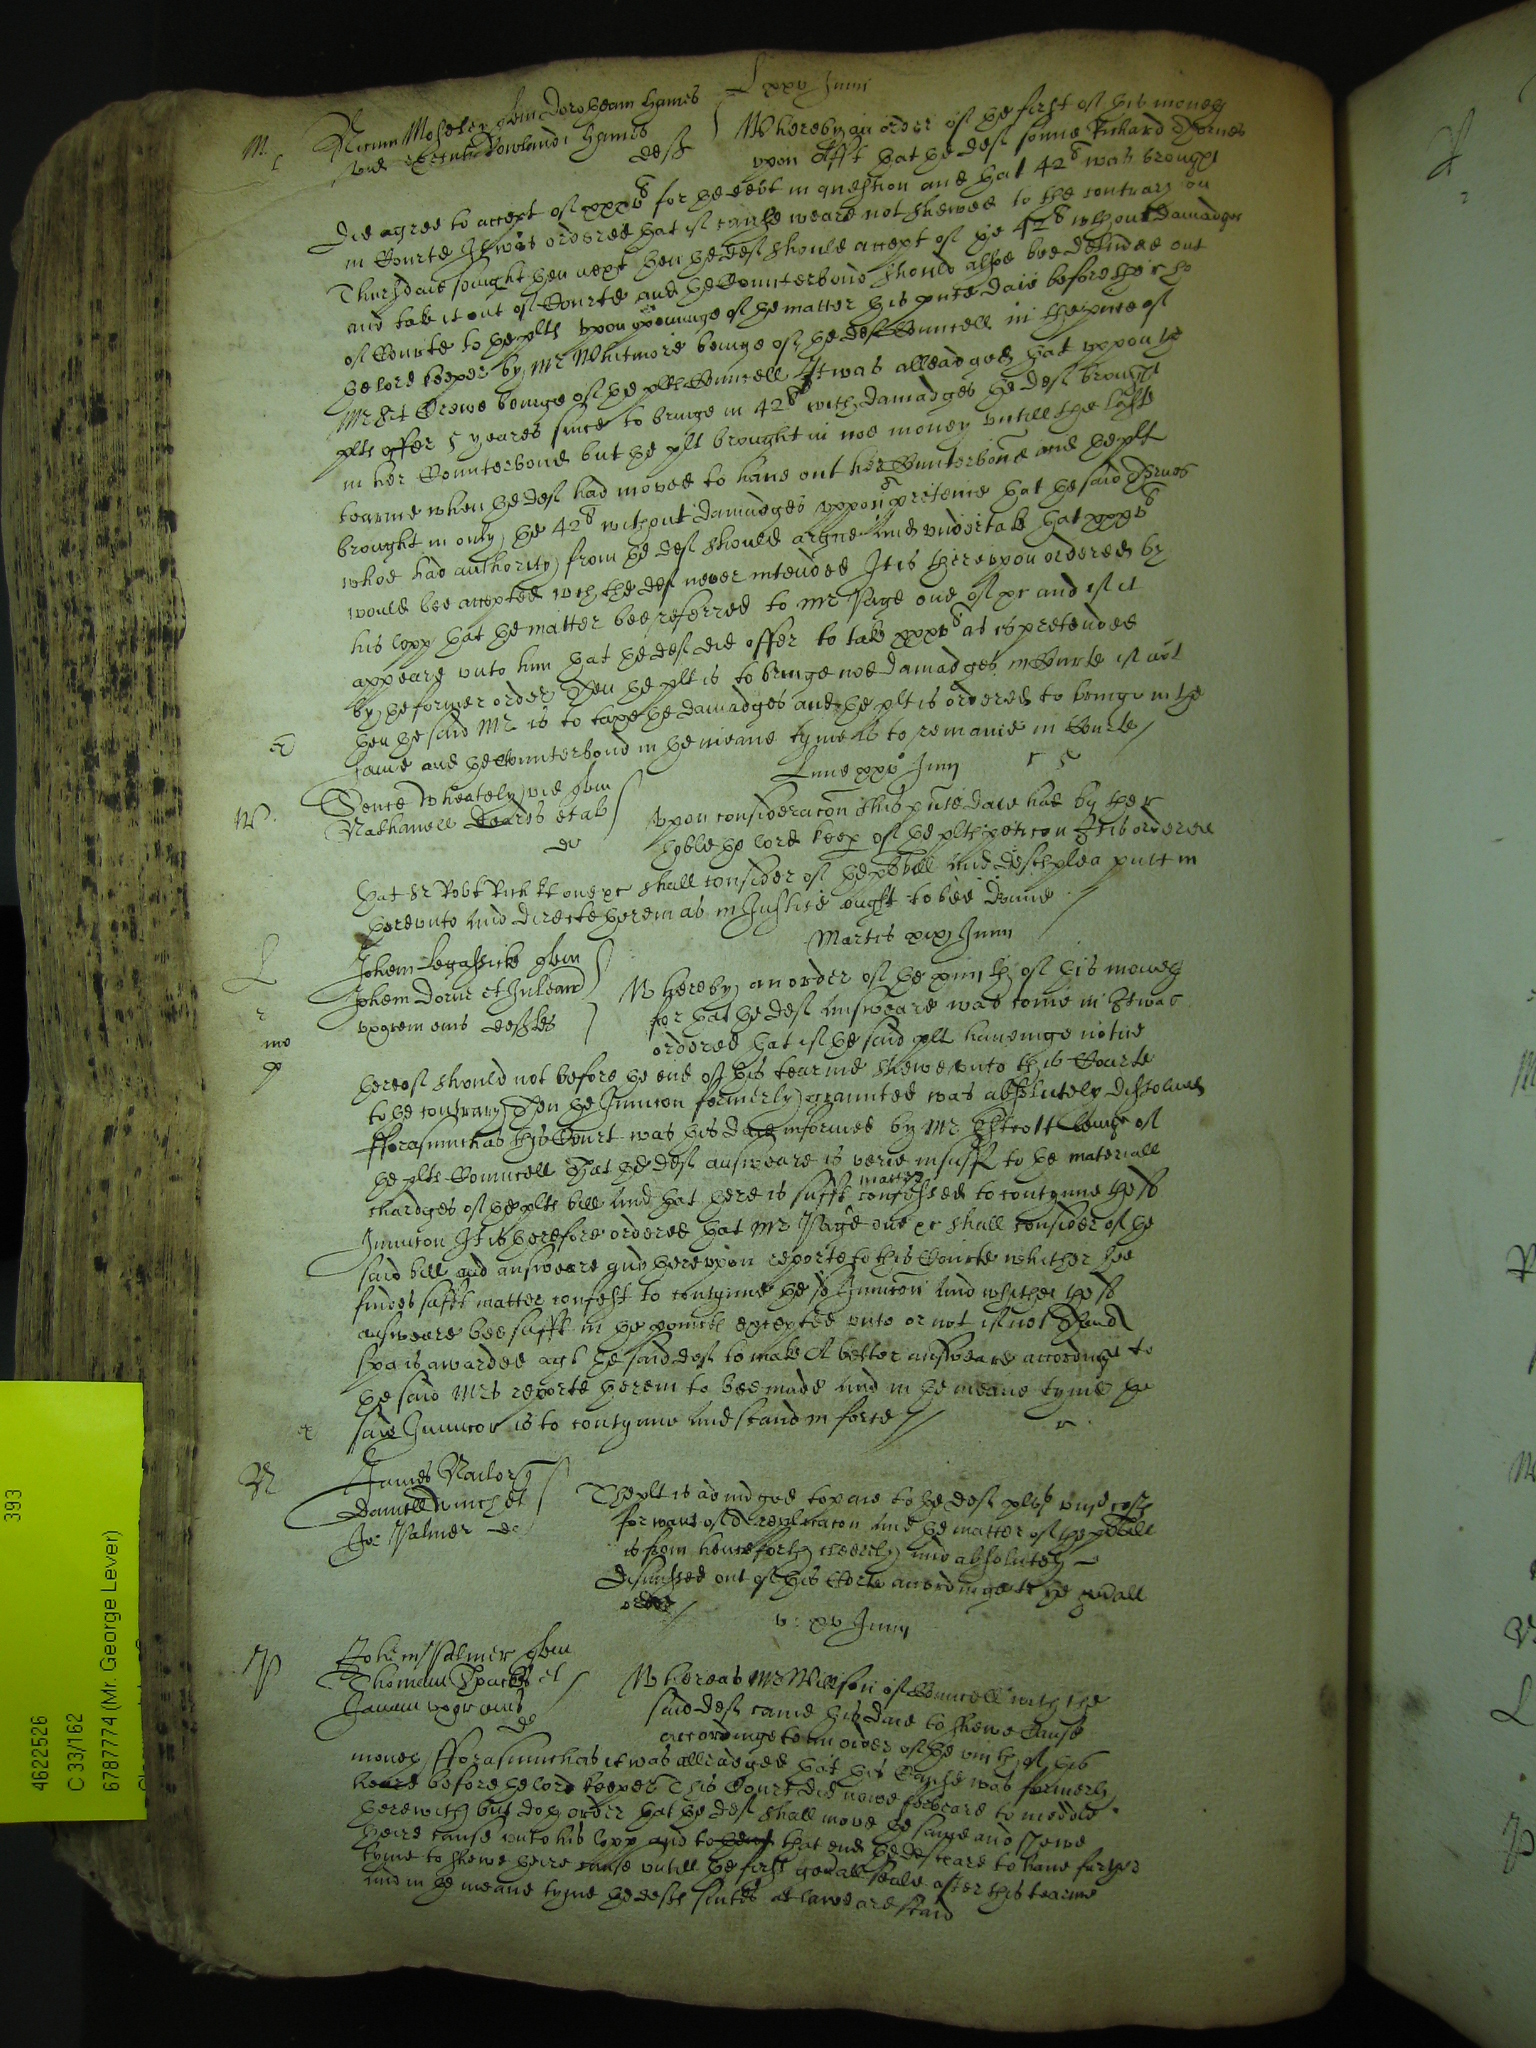 L xxv Junii
M
Moseley quer Dorotheam Hames
vid executr Rowlandi Hames
deft
Whereby an order of the first of this moneth
upon Afft that the deft sonne Richard
did agree to accept of xxxv for the debt in question and that 42 was brought
in Courte It was ordered that if cause weare not shewed to the contrary on
Thursdaie sevnight then next then the deft should accept of the 42 without damadges
and take it out of Courte and the Counterbond should alsoe bee delivered out
of Courte to the plt upon openinge of the matter this pnte daie before the r ho
the lord keeper by Mr Whitmore beinge of the def Councell in the pnce of
Mr Crewe beinge of the plts Councell It was alleadged that uppon the
plts offer 5 yeares since to bringe in 42 with damadges the deft brought
in her Counterbond but the plt brought in noe money untill the laste
tearme when the deft had moved to have out her Counterbond and the plt
brought in only the 42 without damadges uppon pretence that the said
whoe had authority from the deft should agree and undertake that xxxv
would bee accepted wch the def never intended It is thereupon ordered by
his lopp that the matter bee referred to Mr Page one of xr and if it
appeare unto him that the deft did offer to take xxxv as is pretended
by the former order Then the plt is to bringe noe damadges in Courte if not
then the said Mr is to taxe the damadges and the plt is ordered to bringe in the
same and the Counterbond in the meane tyme is to remaine in Courte
Lune xxv Junii
W
Wheately vid quer
Nathaniell et al
de
Upon consideracon this pnte daie had by the r
hoble the lord keep of the plts peticon It is ordered
that Sr Robt Rich kt one xr shall consider of the bill and defts plea putt in
thereunto and directe therein as in Justice ought to bee donne
Martis xix Junii
L
Johem Legassicke quer
Johem Dorne et
uxorem eius defts
Whereby an order of the xiiii th of this moneth
for that the deft answeare was come in It was
ordered that if the said plt haveinge notice
thereof should not before the end of this tearme shewe unto this Courte
to the contrary Then the Iniuncon formerly graunted was absolutely dissolved
fforasmuch as this Court was this daie informed by Mr Estcott beinge of
the plts Councell That the deft answeare is verie insuff to the materiall
chardges of the plts bill and that there is sufft matter confessed to contynue the sd
Iniuncon It is therefore ordered that Mr Page one xr shall consider of the
said bill and answeare and thereupon reporte to this Courte whither hee
findes sufft matter confest to contynue the sd Iniuncon and whither the sd
answeare bee sufft in the pointe excepted unto or not if not Then a
spa is awarded agt the said deft to make A better answeare accordinge to
the said Mrs reporte therein to bee made and in the meane tyme the
said Iniuncon is to contynue and stand in force
N
James Nailor
Daniell Winch et
Jo Palmer de
The plt is adiudged to paie to the deft costs
for want of A replicacon and the matter of the bill
is from henceforth cleerely and absolutely
dismissed out of this Corte accordinge to the genall
order
v xv Junii
P
Johem Palmer quer
Thomam Sparke et
uxor eius
de
Whereas Mr Willson of Councell with the
said deft came this daie to shewe Cause
accordinge to an order of the viii th of this
moneth fforasmuch as it was alleadged that this Cause was formerly
heard before the lord keeper This Court did nowe forbeare to meddle
therewith but doth order that the deft shall move the same and shewe
theire cause unto his lopp and to that end the deft are to have further
tyme to shewe theire cause untill the first genall seale after this tearme
and in the meane tyme the defts suites at lawe are staid
393
4622526
C 33/162
6787774 (Mr. George Lever)